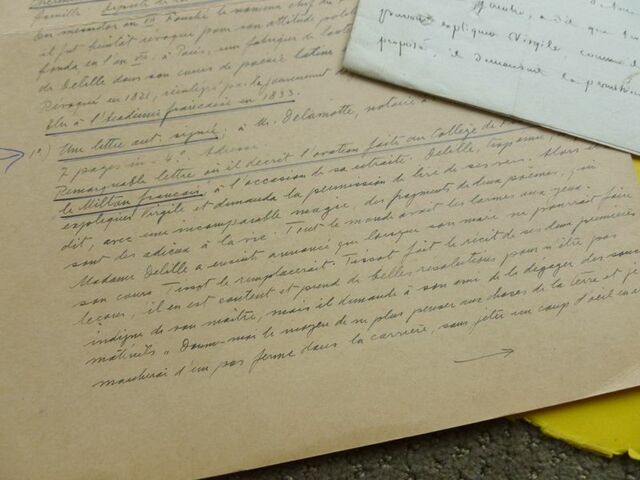 famille
En messidor an VII Fouché le nomme chef du
il fut bientôt révoqué pour son attitude
fonda en l'an VIII, à Paris, une fabrique de
de Delille dans son cours de poésie latine
Révoqué en 1821, réintégré par le gouvernement
Elu à l'Académie française en 1833.
1°) Une lettre aut. signée, à Mr. Delamotte, notaire à
7 pages in-4°. Adresse.
Remarquable lettre où il décrit l'ovation faite au Collège de
le Milton français, à l'occasion de sa retraite. Delille,
expliqua Virgile et demanda la permission de lire de ses vers. Alors
dit, avec une incomparable magie, des fragments de deux poèmes, qui
sont des adieux à la vie. Tout le monde avait les larmes aux yeux.
Madame Delille a ensuite annoncé que lorsque son mari ne pourrait faire
son cours Tissot le remplacerait. Tissot fait le récit de ses deux premières
leçons, il en est content et prend de belles résolutions pour n'être pas
indigne de son maître, mais il demande à son ami de le dégager des soucis
matériels "Donne-moi le moyen de ne plus penser aux choses de la terre et je
marcherai d'un pas ferme dans la carrière, sans jeter un coup d'oeil en
à dit que
expliquer Virgile, comme
proposé, il demanderait la permission